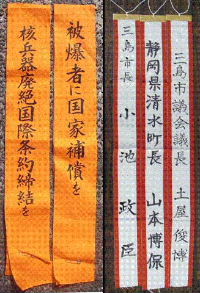 被爆者に国家補償を
核兵器廃絶国際条約締結を
三島市議会議長　土屋俊博
静岡県清水町長　山本博保
三島市長　小池政臣